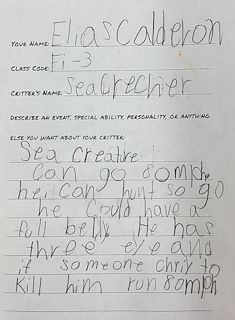 YOUR NAME: Elias Calderon
CLASS CODE: Fi-3
CRITTER'S NAME: SeaCrechier
DESCRIBE AN EVENT, SPECIAL ABILITY, PERSONALITY, OR ANYTHING
ELSE YOU WANT ABOUT YOUR CRITTER:
Sea Creature
Can go 80mph
he can hunt so go
he could have a
full belly He has
three eye and
if someone chriy to
Kill him run 80mph